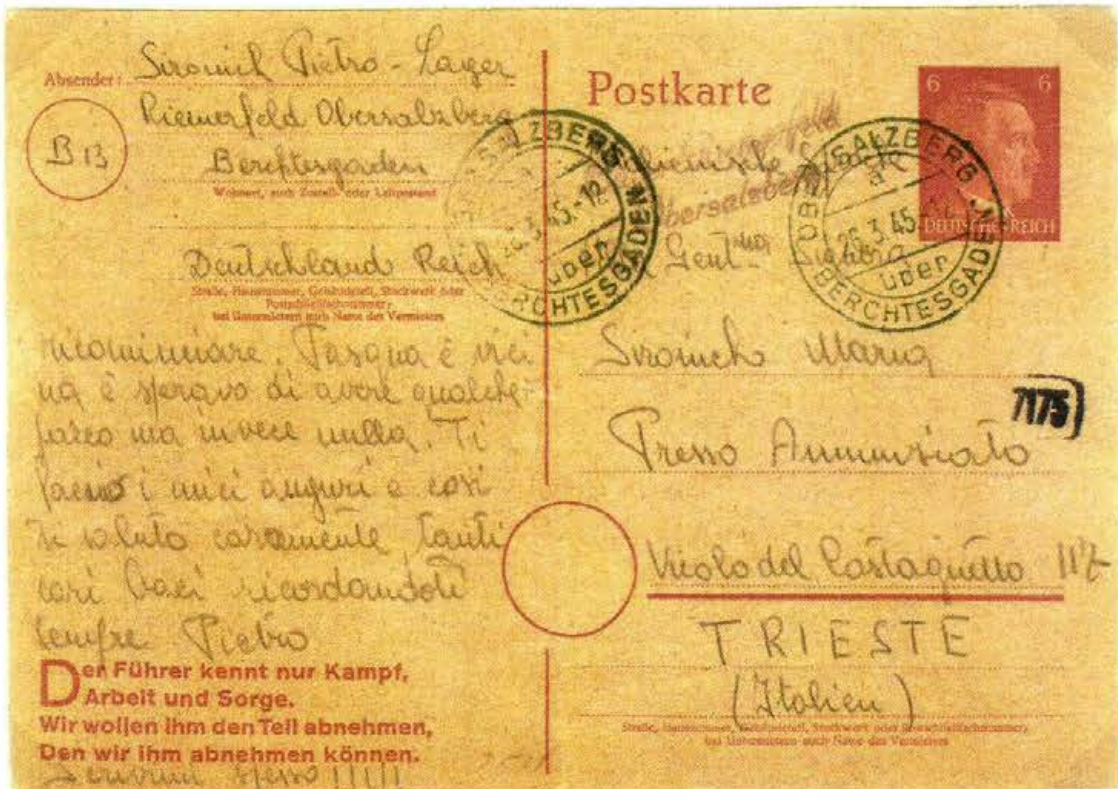 Absender: Siroinich Pietro - Lager
Riemerfeld Obersalzberg
B 13
Berchtesgaden
Wohnort, auch Zustell- oder Leitpostamt
Deutschland Reich
Straße, Hausnummer, Gebäudeteil, Stockwerk oder
Postschließfachnummer,
bei Untermietern auch Name des Vermieters
ricominciare. Pasqua è vici
na è speravo di avere qualche
pacco ma invece nulla. Ti
faccio i miei auguri e così
ti saluto caramente, tanti
cari baci ricordandoti
sempre Pietro
Der Führer kennt nur Kampf,
Arbeit und Sorge.
Wir wollen ihm den Teil abnehmen,
Den wir ihm abnehmen können.
Scrivimi spesso !!!!!
Postkarte
6 6
DEUTSCHES REICH
OBERSALZBERG
26.3.45.-12
über
BERCHTESGADEN
OBERSALZBERG
a
26.3.45
über
BERCHTESGADEN
Obersalzberg
Gent.ma Signora
Siroinich Maria
7175
Presso Annunziato
Vicolo del Castagneto 117
TRIESTE
(Italien)
Straße, Hausnummer, Gebäudeteil, Stockwerk oder Postschließfachnummer,
bei Untermietern auch Name des Vermieters